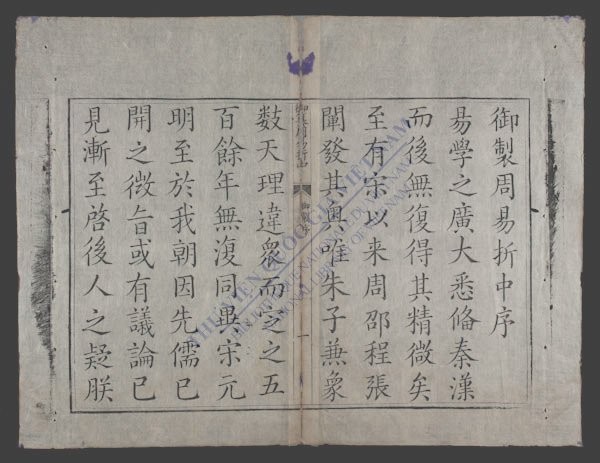 御製周易折中序
易學之廣大悉俻秦漢
而後無復得其精微矣
至有宋以来周邵程張
闡發其奧唯朱子兼象
數天理違衆而定之五
百餘年無復同異宋元
明至於我朝因先儒已
開之微旨或有議論已
見漸至啓後人之疑朕
一